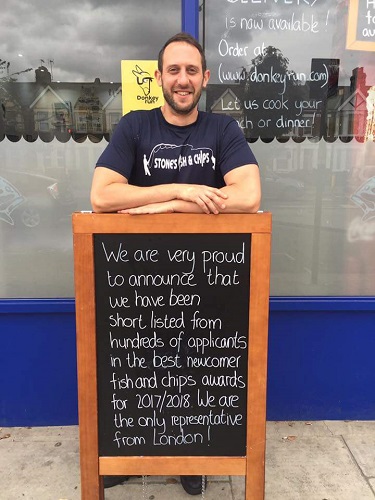 is now available!
Order at
(www.donkeyrun.com)
Let us cook your
lunch or dinner!
Donkey
run
STONE'S FISH & CHIPS
We are very proud
to announce that
we have been
short listed from
hundreds of applicants
in the best newcomer
fish and chips awards
for 2017/2018. We are
the only representative
from London!